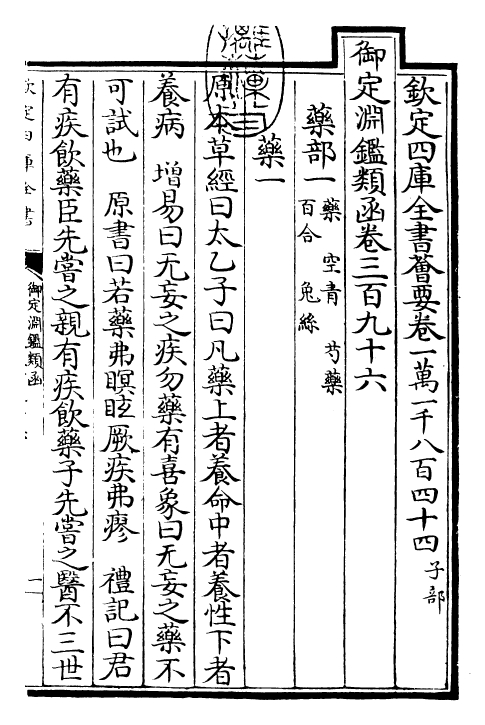 欽定四庫全書薈要卷一萬一千八百四十四 子部
御定淵鑑類函卷三百九十六
藥部一 藥 空青 芍藥
百合 兔絲
藥一
原本草經曰太乙子曰凡藥上者養命中者養性下者
養病 增易曰无妄之疾勿藥有喜象曰无妄之藥不
可試也 原書曰若藥弗瞑眩厥疾弗瘳 禮記曰君
有疾飲藥臣先嘗之親有疾飲藥子先嘗之醫不三世
欽定四庫全書
御定淵鑑類函
一